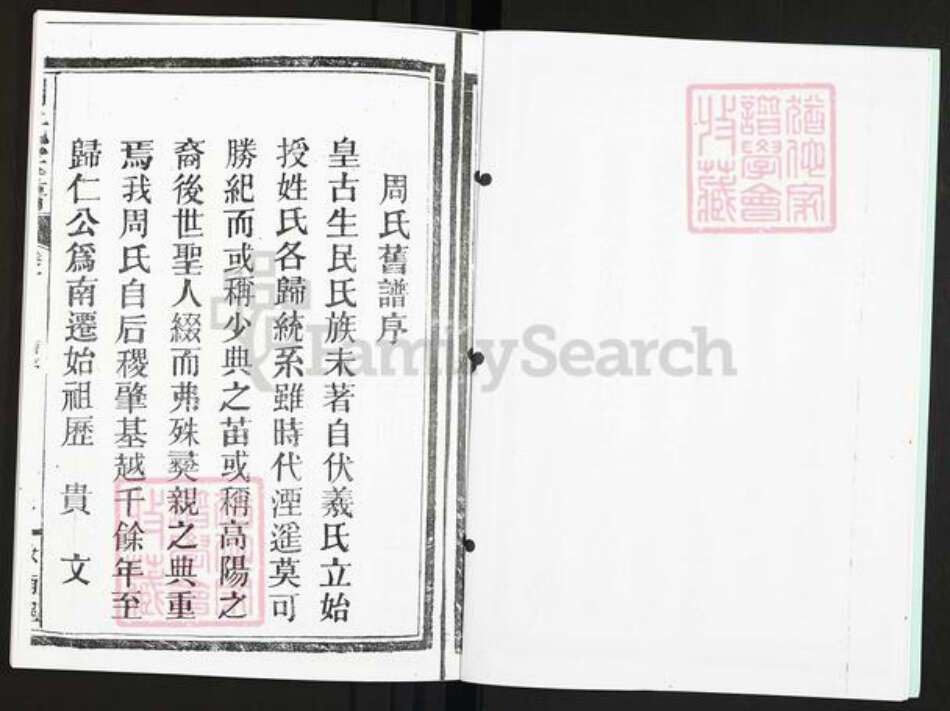 周氏舊譜序
皇古生民氏族未著自伏羲氏立始
授姓氏各歸統系雖時代湮遥莫可
勝紀而或稱少典之苗或稱高陽之
裔後世聖人綴而弗殊奠親之典重
焉我周氏自后稷肇基越千餘年至
歸仁公爲南遷始祖歷 貴 文
猶他家譜學會收藏
FamilySearch